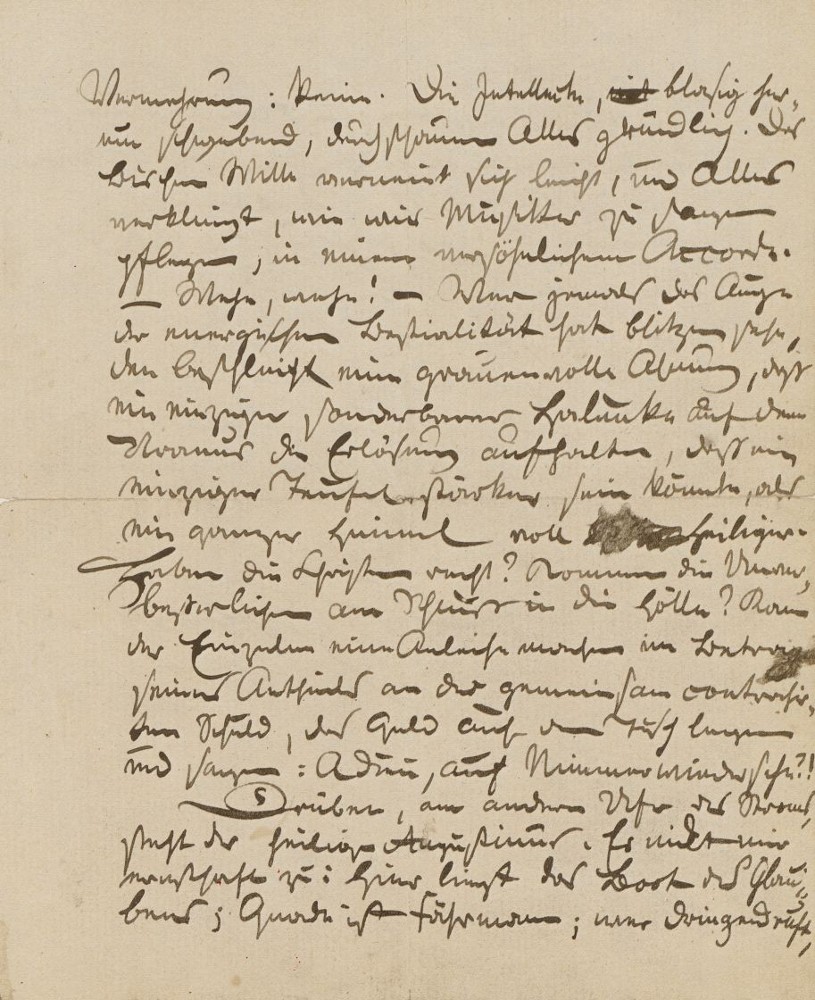 Vermehrung: keine. Die Intellecte, blasig her-
um schwebend, durchschauen Alles gründlich. Das
bischen Wille verneint sich leicht, und Alles
verklingt, wie wir Musiker zu sagen
pflegen, in einem versöhnlichem Accorde.
— Wehe, wehe! — Wer jemals das Auge
der energischen Bestialität hat blitzen sehn,
den beschleicht eine grauenvolle Ahnung, daß
ein einziger sonderbarer Halunke auf dem
Uranus die Erlösung aufhalten, daß ein
einziger Teufel stärker sein könnte, als
ein ganzer Himmel voll Heiliger.
Haben die Christen recht? Kommen die Unver-
besserlichen am Schluß in die Hölle? Kann
der Einzelne eine Anleihe machen im Betrag
seines Antheils an der gemeinsam contrahir-
ten Schuld, das Geld auf den Tisch legen
und sagen: Adieu, auf Nimmerwiedersehn?!
Drüben, am andern Ufer des Stroms,
steht der heilige Augustinus. Er nickt mir
ernsthaft zu: Hier liegt das Boot des Glau-
bens; Gnade ist Fährmann; wer dringend ruft,